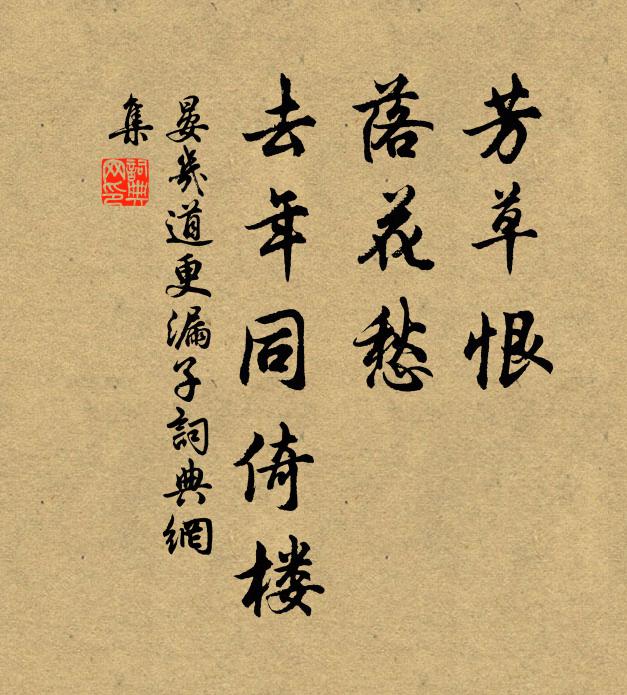 芳草恨
落花愁
去年同倚楼
晏幾道更漏子詞典網
集
詞典
网印